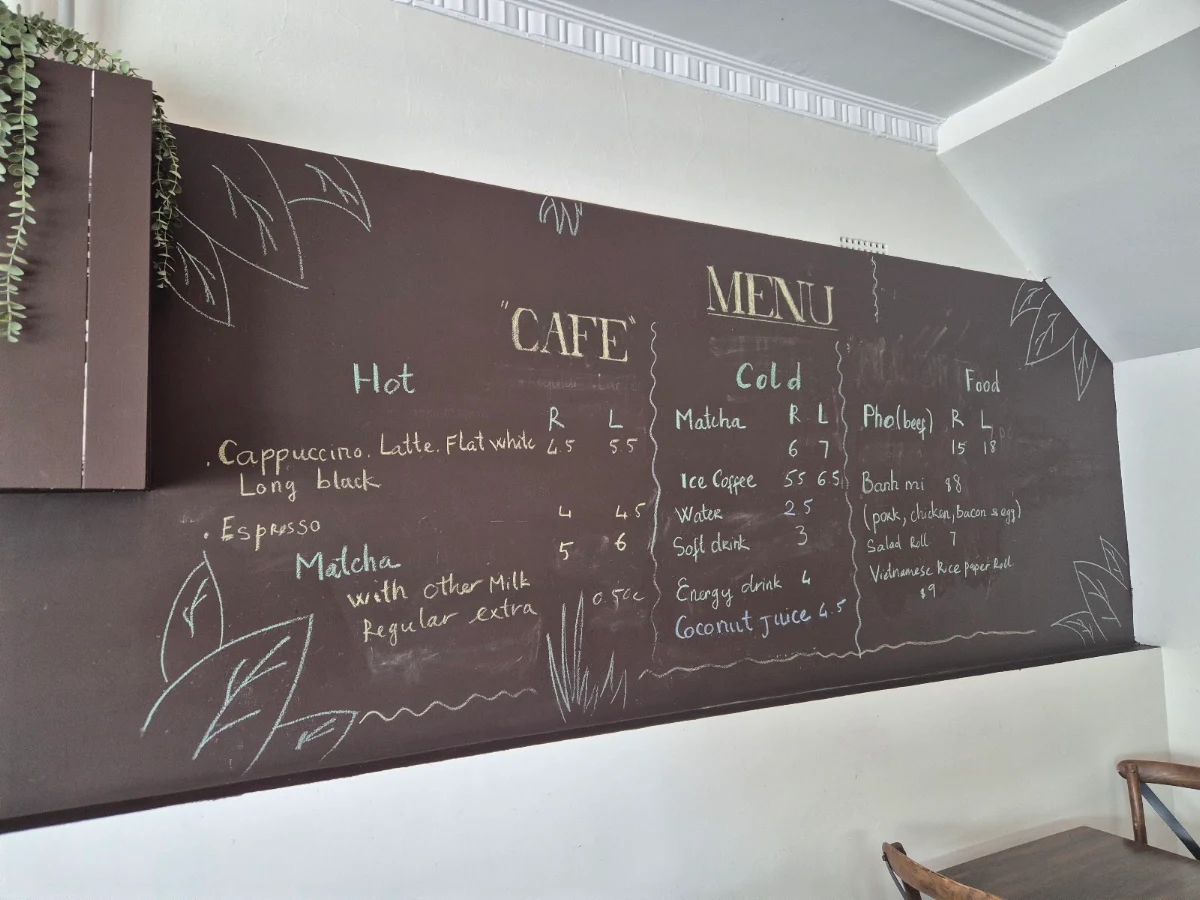 MENU
"CAFE"
Hot
R L
. Cappuccino. Latte. Flat white 4.5 5.5
Long black
. Espresso 4 4.5
Matcha 5 6
with other Milk
Regular extra 0.5c
Cold
Matcha R L
6 7
Ice Coffee 5 5 6.5
Water 2 5
Soft drink 3
Energy drink 4
Coconut juice 4.5
Food
Pho (beef) R L
15 18
Banh mi $8
(pork, chicken, bacon & egg)
Salad Roll 7
Vietnamese Rice paper Roll
$9